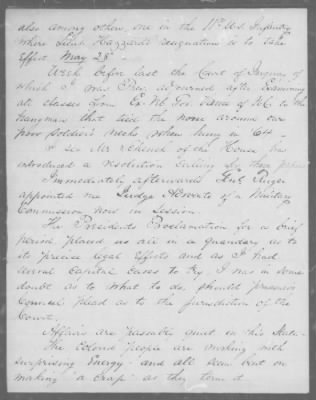 also among others, one in the 11th U.S. Infantry
where Lieut Hazzard's resignation is to take
Effect May 28th
Week before last the Court of Inquiry of
which I was Pres. adjourned after Examining
all classes from Ex Gov. Vance of NC to the
hangman that tied the noose around our
poor soldier's necks when hung in 64.
I see Mr Schenck of the House has
introduced a resolution calling for these
Immediately afterwards Genl. Ruger
appointed me Judge Advocate of a Military
Commission now in Session.
The Presidents Proclamation for a brief
period placed us all in a quandary, as to
its precise legal Effects and as I had
several Capital Cases to try, I was in some
doubt as to what to do, should prisoners
Counsel plead as to the jurisdiction of the
Court.
Affairs are passably quiet in this State.
The Colored people are working with
surprising Energy and all seem bent on
making "a crap" as they term it